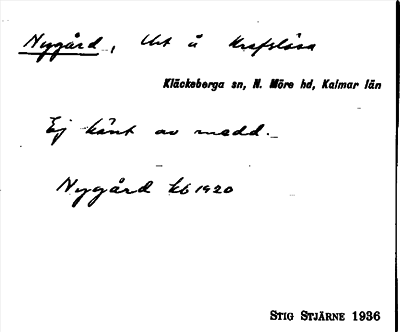 Nygård, Urt å Krafslösa
Kläckeberga sn, N. Möre hd, Kalmar län
Ej känt av medd.
Nygård kb 1920
STIG STJÄRNE 1936